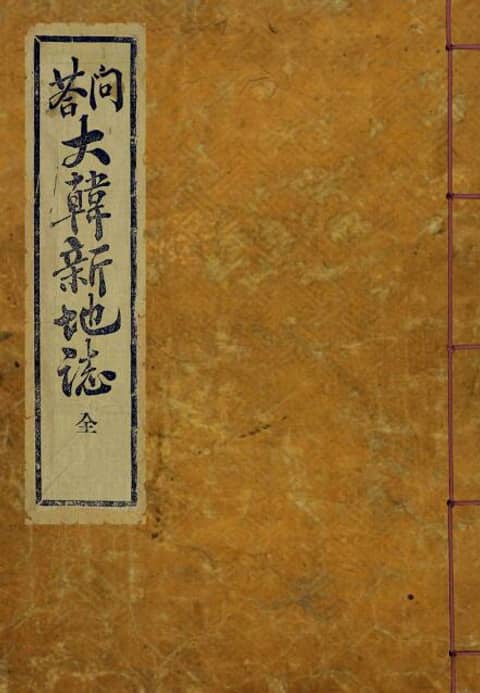 問答
大韓新地誌
全